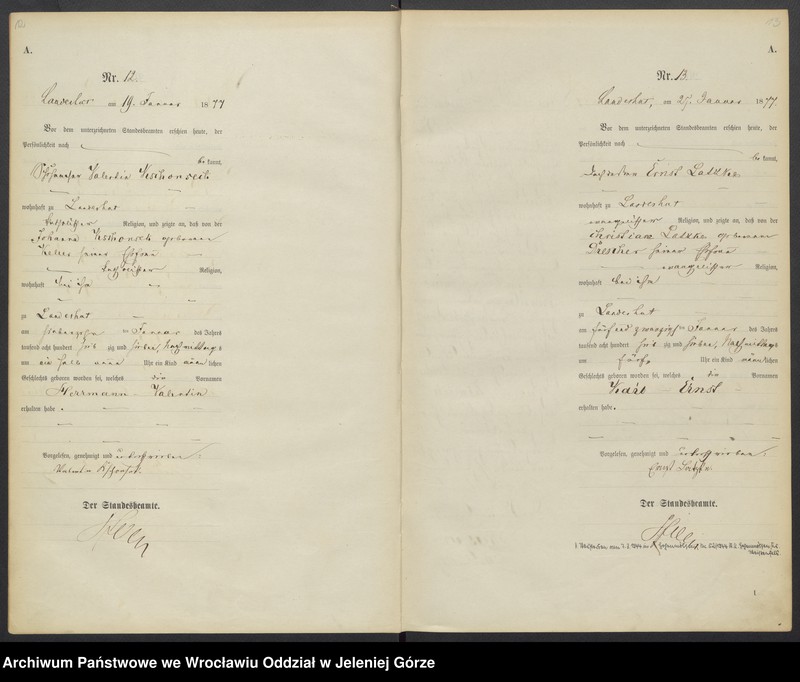 A.
Nr. 12.
Landeshut am 19. Januar 1877
Vor dem unterzeichneten Standesbeamten erschien heute, der
Persönlichkeit nach
be kannt,
Valentin
wohnhaft zu Landeshut
katholischer Religion, und zeigte an, daß von der
Johanna geborenen
seiner Ehefrau
katholischer Religion,
wohnhaft bei ihm
zu Landeshut
am siebenzehn ten Januar des Jahres
tausend acht hundert sieb zig und sieben, Nachmittags
um ein halb neun Uhr ein Kind männ lichen
Geschlechts geboren worden sei, welches die Vornamen
Herrmann Valentin
erhalten habe.
Vorgelesen, genehmigt und unterschrieben.
Der Standesbeamte.
A.
Nr. 13.
Landeshut, am 27. Januar 1877.
Vor dem unterzeichneten Standesbeamten erschien heute, der
Persönlichkeit nach
be kannt,
Ernst Latzke
wohnhaft zu Landeshut
evangelischer Religion, und zeigte an, daß von der
Christiane Latzke geborenen
Drescher seiner Ehefrau
evangelischer Religion,
wohnhaft bei ihm
zu Landeshut
am fünf und zwanzigsten Januar des Jahres
tausend acht hundert sieb zig und sieben, Nachmittags
um fünf Uhr ein Kind männ lichen
Geschlechts geboren worden sei, welches die Vornamen
Karl Ernst
erhalten habe.
Vorgelesen, genehmigt und unterschrieben.
Ernst Latzke
Der Standesbeamte.
Archiwum Państwowe we Wrocławiu Oddział w Jeleniej Górze